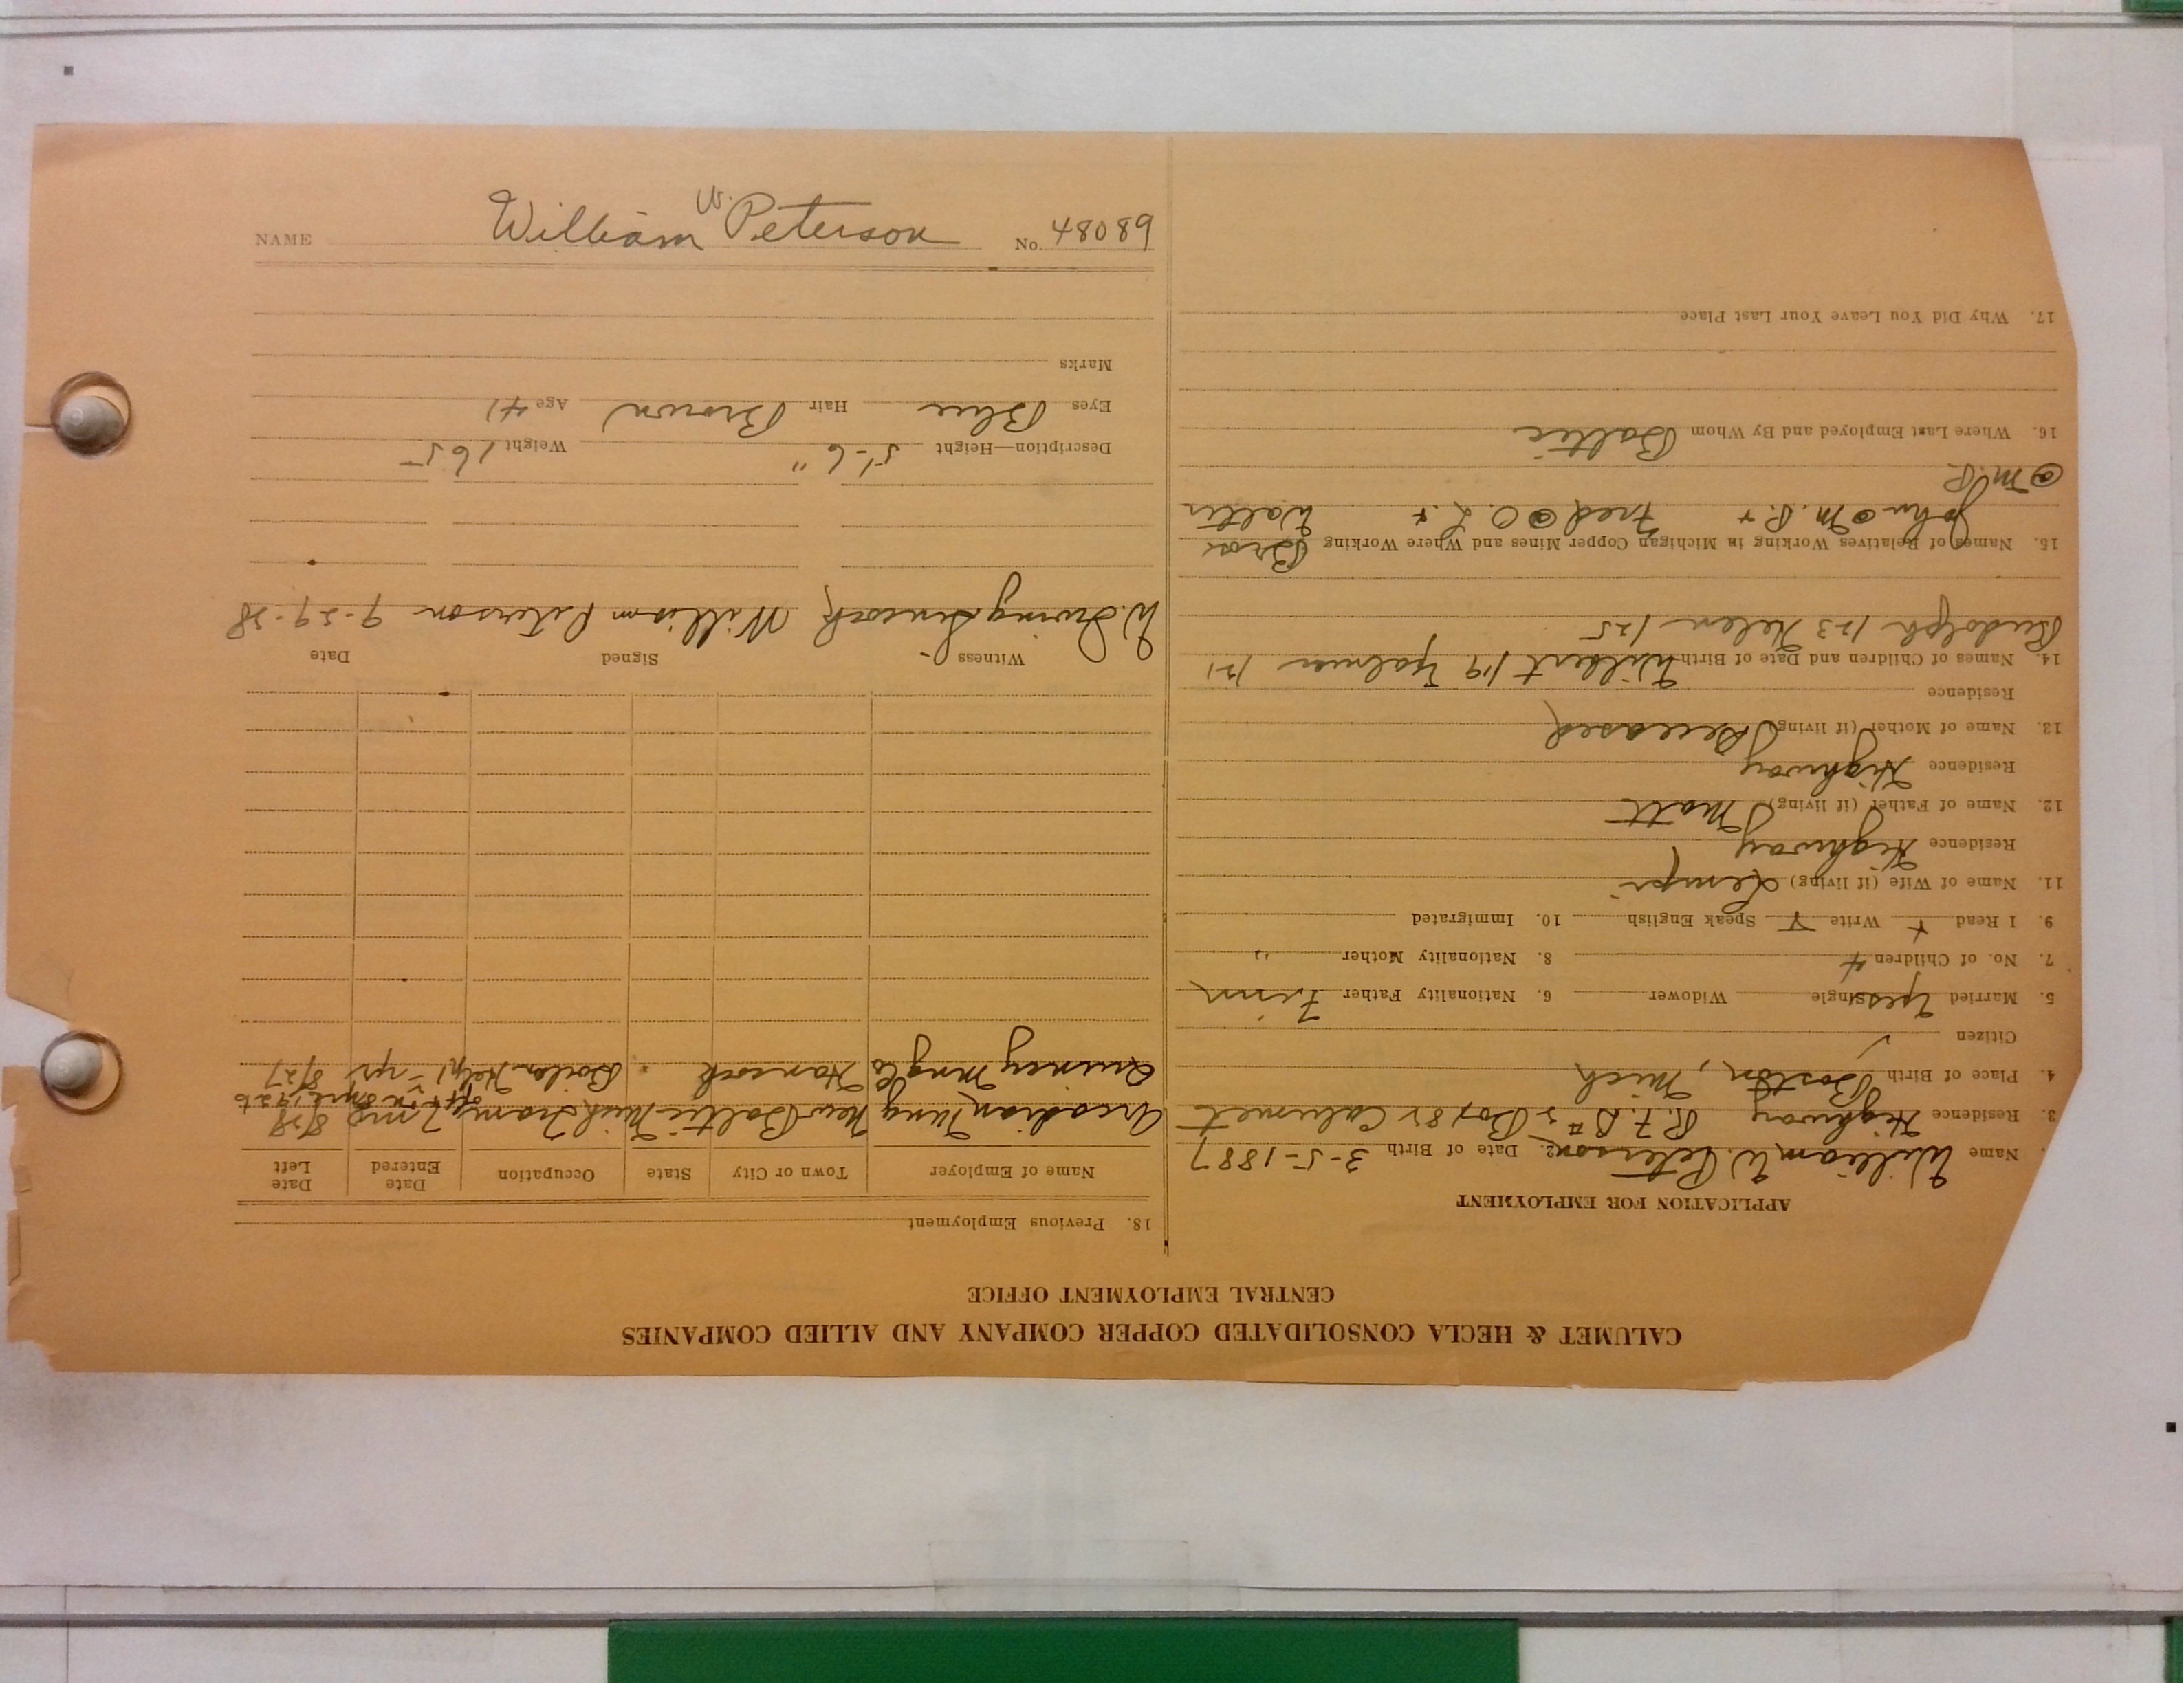 CALUMET & HECLA CONSOLIDATED COPPER COMPANY AND ALLIED COMPANIES
CENTRAL EMPLOYMENT OFFICE
APPLICATION FOR EMPLOYMENT
Name William W. Peterson 2. Date of Birth 3-5-1887
3. Residence Highway R.F.D #2 Box 82 Calumet
4. Place of Birth Boston, Mich
Citizen ✓
5. Married Yes Single Widower 6. Nationality Father Finn
7. No. of Children 4 8. Nationality Mother "
9. I Read + Write Y Speak English 10. Immigrated
11. Name of Wife (if living) Lempi
Residence Highway
12. Name of Father (if living) Matt
Residence Highway
13. Name of Mother (if living) Deceased
Residence
14. Names of Children and Date of Birth Wilbert 1/19 Hjalmer 1/21
Rudolph 1/23 Helen 1/25
15. Names of Relatives Working in Michigan Copper Mines and Where Working Bros
John @ M.R. + Fred @ O.L. + Walter
@ M.R.
16. Where Last Employed and By Whom Baltic
17. Why Did You Leave Your Last Place
18. Previous Employment
Name of Employer Town or City State Occupation Date Entered Date Left
Arcadian Mng New Baltic Mich Tram 7 mos 8/28
off + on 1926
Quincy Mng Co Hancock " Boiler Help 1 - yr 8/27
Witness Signed Date
W. Irving William Peterson 9-29-28
Description—Height 5'-6" Weight 165
Eyes Blue Hair Brown Age 41
Marks
NAME William W. Peterson No. 48089